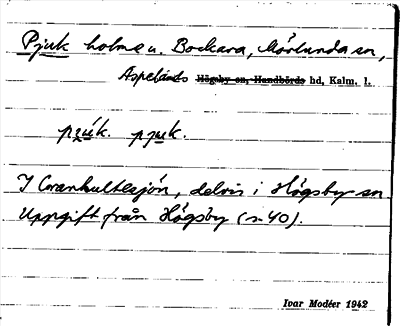 Pjuk holme u. Bockara, Mörlunda sn,
Aspelands Högsby sn, Handbörds hd, Kalm. l.
pjúk. pjuk.
I Cranhultesjön, delvis i Högsby sn
Uppgift från Högsby (s. 40).
Ivar Modéer 1942